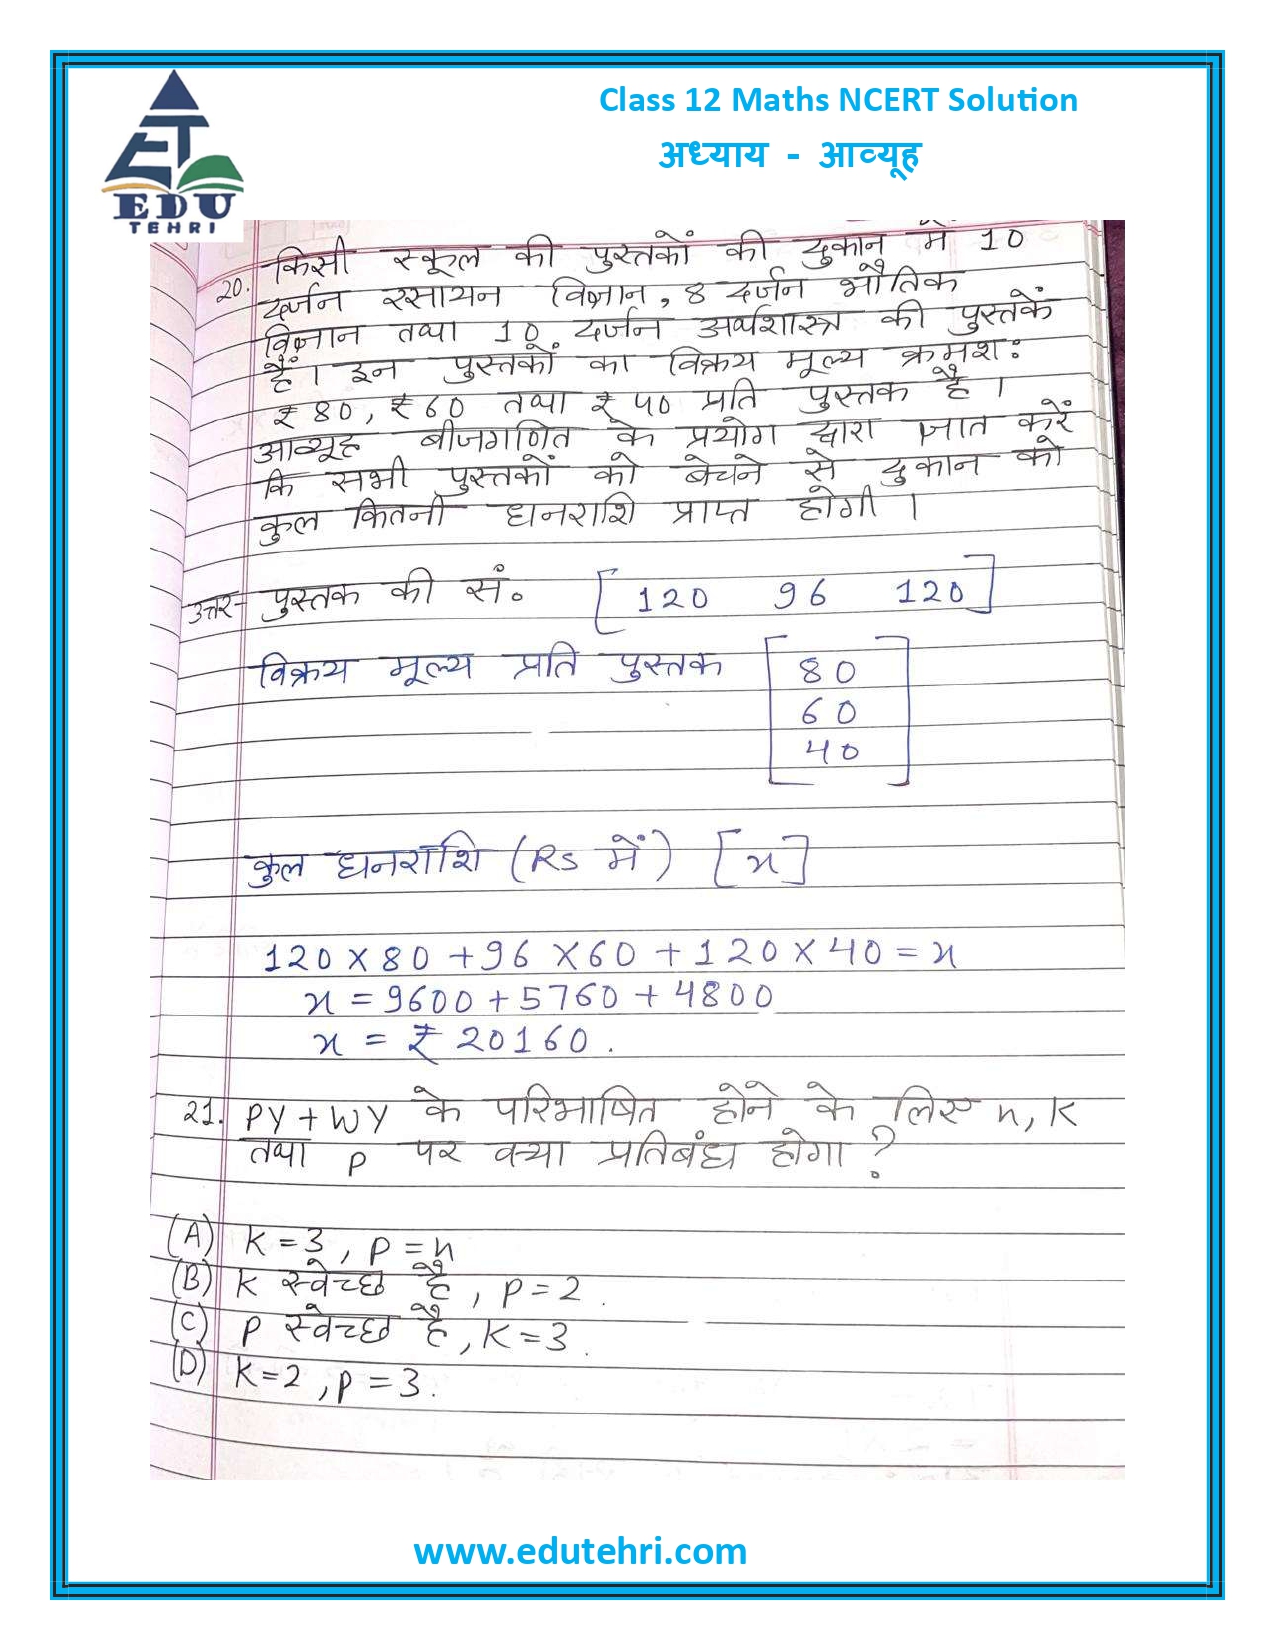 Class 12 Maths NCERT Solution
अध्याय - आव्यूह
EDU
TEHRI
20. किसी स्कूल की पुस्तकों की दुकान में 10
दर्जन रसायन विज्ञान, 8 दर्जन भौतिक
विज्ञान तथा 10 दर्जन अर्थशास्त्र की पुस्तकें
हैं। इन पुस्तकों का विक्रय मूल्य क्रमश:
₹80, ₹60 तथा ₹40 प्रति पुस्तक है।
आव्यूह बीजगणित के प्रयोग द्वारा ज्ञात करें
कि सभी पुस्तकों को बेचने से दुकान को
कुल कितनी धनराशि प्राप्त होगी।
उत्तर- पुस्तक की सं. [120 96 120]
विक्रय मूल्य प्रति पुस्तक [80
60
40]
कुल धनराशि (Rs में) [x]
120 x 80 + 96 x 60 + 120 x 40 = x
x = 9600 + 5760 + 4800
x = ₹ 20160.
21. PY + WY के परिभाषित होने के लिए n, K
तथा P पर क्या प्रतिबंध होगा?
(A) K = 3, P = n
(B) K स्वेच्छ है, P = 2.
(C) P स्वेच्छ है, K = 3.
(D) K = 2, P = 3.
www.edutehri.com